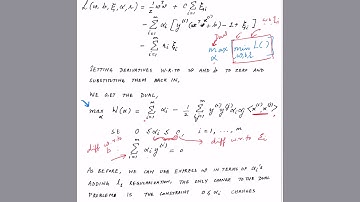 L(w, b, ξ, α, r) = 1/2 wᵀw + C Σ ξi
- Σ αi [ y⁽ⁱ⁾(wᵀx⁽ⁱ⁾ + b) - 1 + ξi ]
- Σ ri ξi
max α min w,b L()
SETTING DERIVATIVES W.R.TO w AND b TO ZERO AND
SUBSTITUTING THEM BACK IN,
WE GET THE DUAL,
max α W(α) = Σ αi - 1/2 Σ y⁽ⁱ⁾ y⁽ʲ⁾ αi αj <x⁽ⁱ⁾ x⁽ʲ⁾>
st 0 ≤ αi ≤ C, i = 1, ..., m
diff w.r.to b diff w.r.to ξi
Σ αi y⁽ⁱ⁾ = 0
AS BEFORE, WE CAN EXPRESS W IN TERMS OF αi's
ADDING L1 REGULARIZATION, THE ONLY CHANGE TO THE DUAL
PROBLEM IS THE CONSTRAINT 0 ≤ αi CHANGES